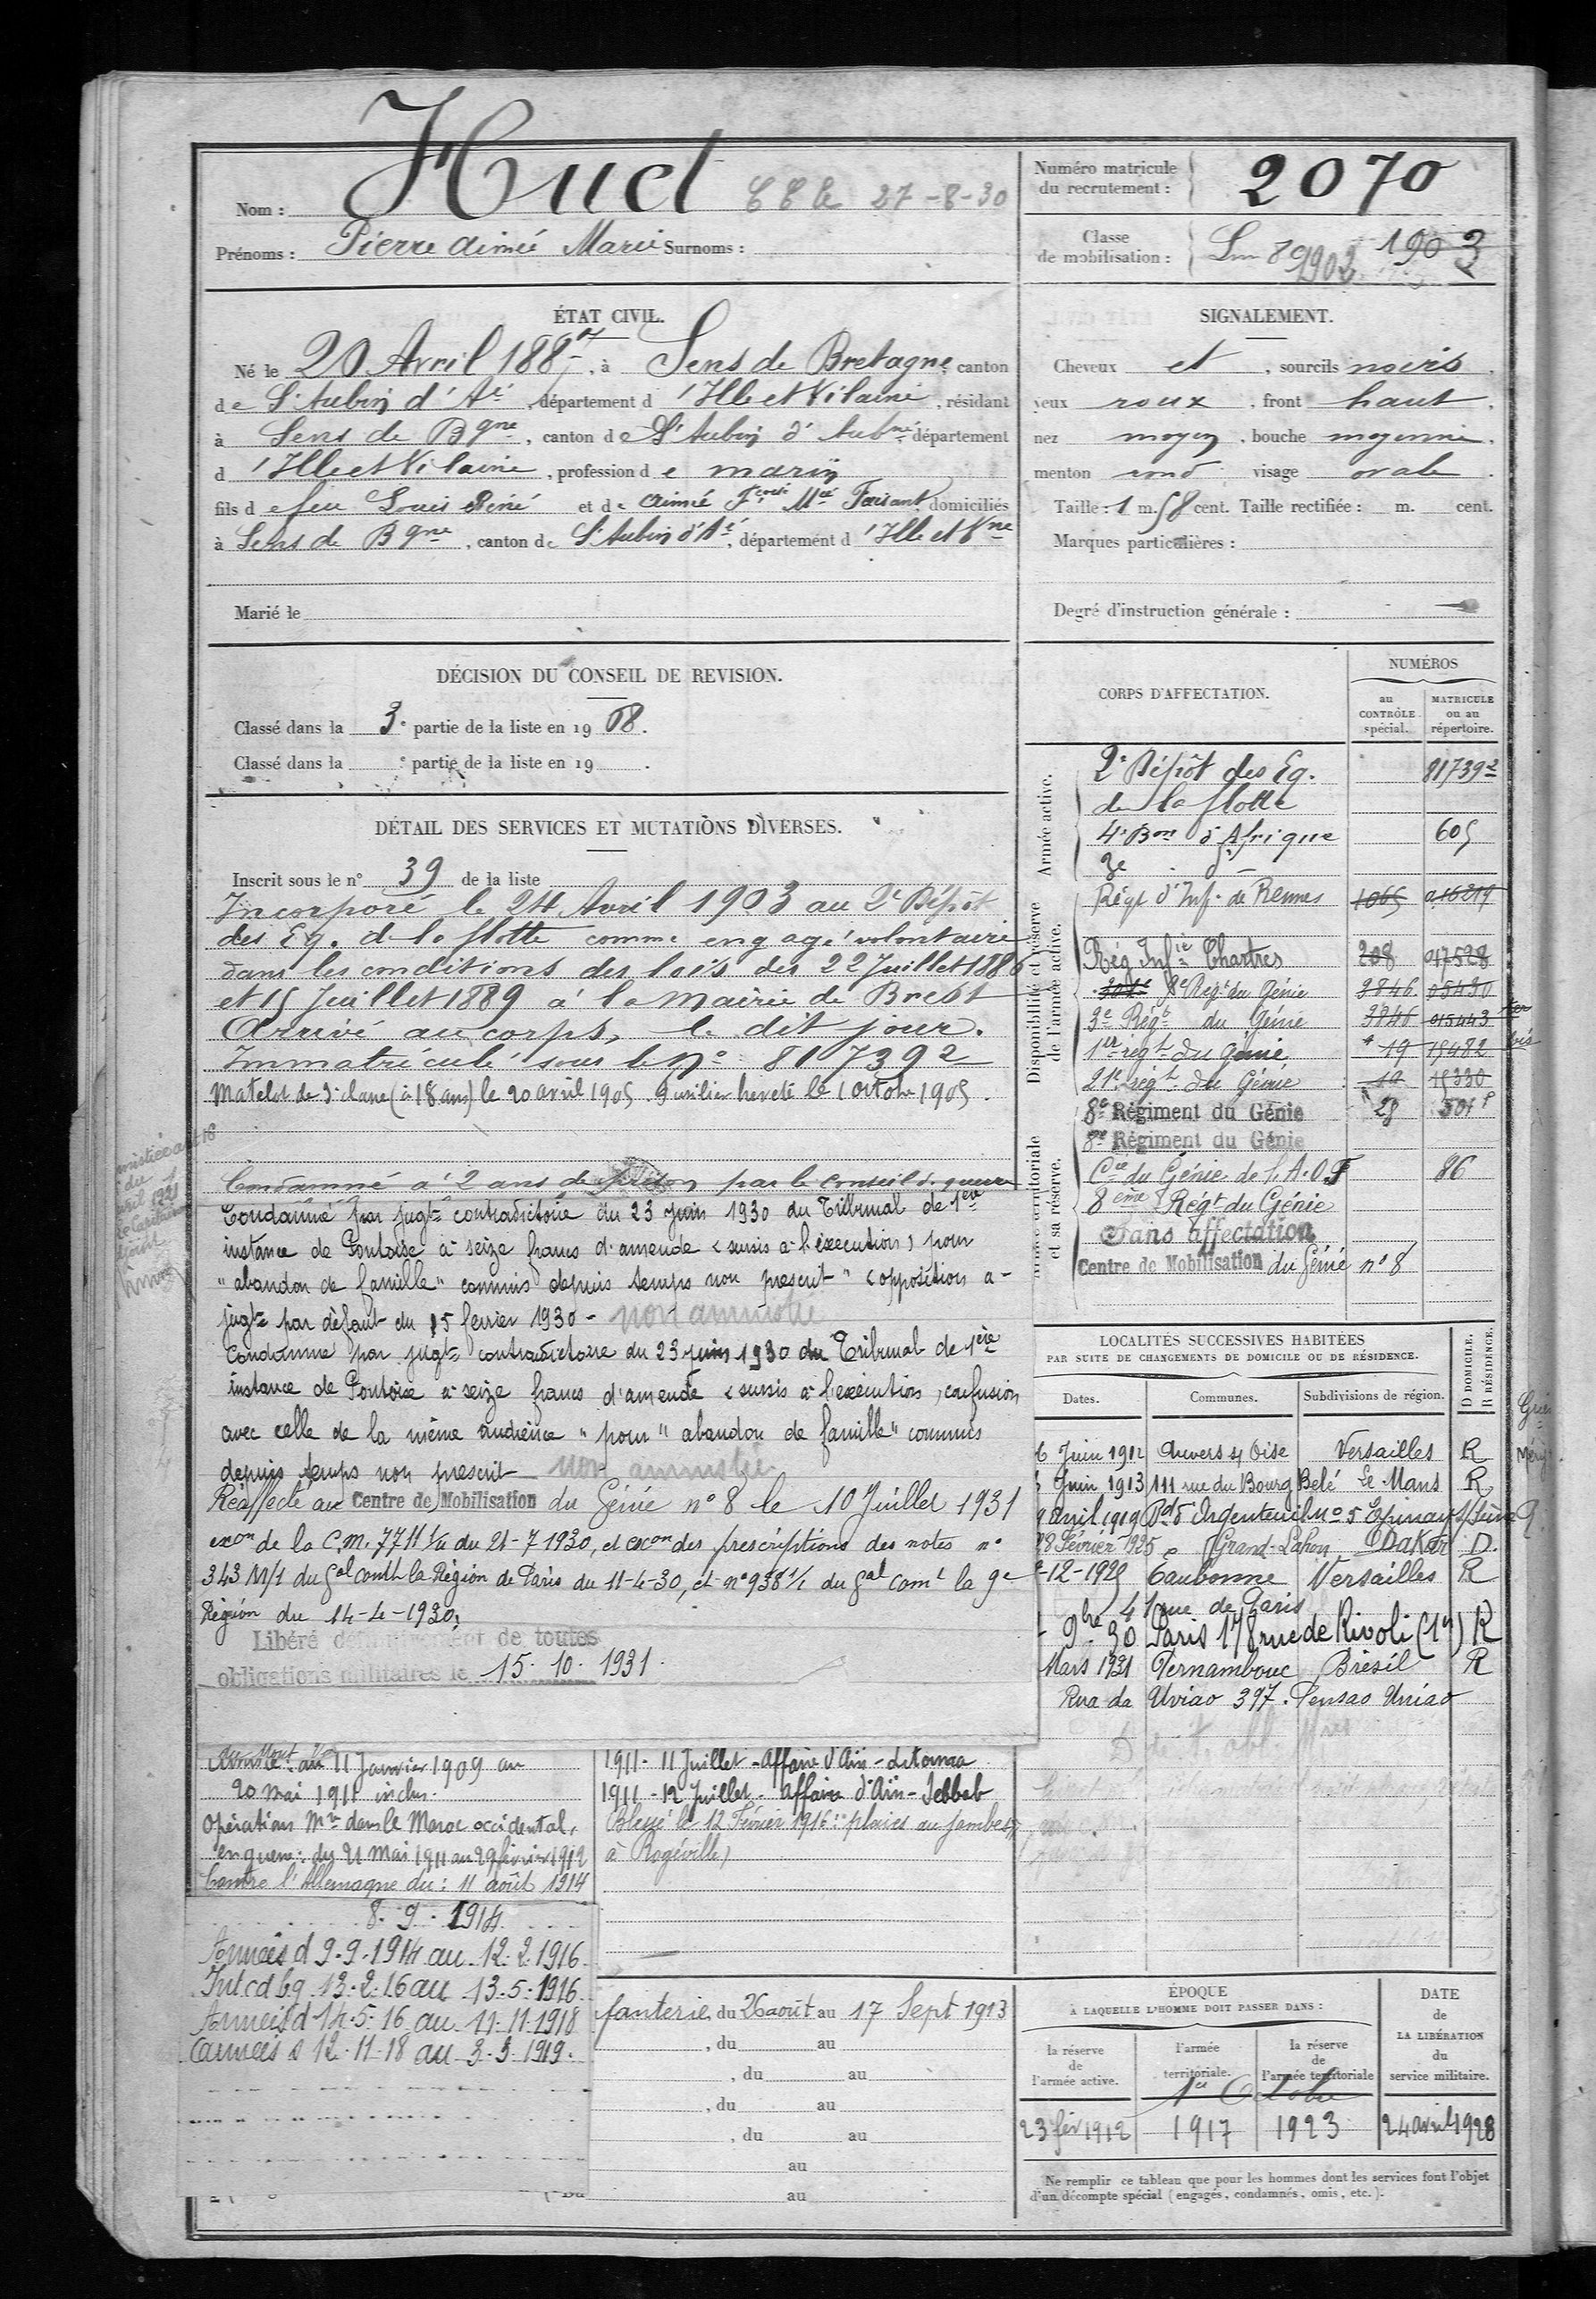 Nom : Huet CC le 27-8-30
Prénoms : Pierre Aimée Marie Surnoms :
Numéro matricule du recrutement : 2070
Classe de mobilisation : 1902 1903
ÉTAT CIVIL.
Né le 20 Avril 1887, à Sens de Bretagne, canton
de St Aubin d'Aé, département d'Ille et Vilaine, résidant
à Sens de Bgne, canton de St Aubin d'Aubné département
d'Ille et Vilaine, profession de marin
fils de feu Louis René et de Aimée Fçoise Mie Faisant, domiciliés
à Sens de Bgne, canton de St Aubin d'Aé, département d'Ille et Vne
Marié le
SIGNALEMENT.
Cheveux et, sourcils noirs,
yeux roux, front haut,
nez moyen, bouche moyenne,
menton rond visage ovale.
Taille : 1 m. 58 cent. Taille rectifiée : m. cent.
Marques particulières :
Degré d'instruction générale :
DÉCISION DU CONSEIL DE REVISION.
Classé dans la 3e partie de la liste en 1908.
Classé dans la e partie de la liste en 19 .
DÉTAIL DES SERVICES ET MUTATIONS DIVERSES.
Inscrit sous le n° 39 de la liste
Incorporé le 24 Avril 1903 au 2e Dépôt
des Eq. de la flotte comme engagé volontaire
dans les conditions des lois des 22 Juillet 1886
et 15 Juillet 1889 à la Mairie de Brest
Arrivé au corps, le dit jour.
Immatriculé sous le No 817392
Matelot de 3e classe (à 18 ans) le 20 avril 1905. Fusilier breveté le 1 octobre 1905.
Condamné à 2 ans de prison par le conseil de guerre
Condamné par jugt contradictoire du 23 juin 1930 du Tribunal de 1ère
instance de Pontoise à seize francs d'amende (sursis à l'exécution) pour
"abandon de famille" commis depuis temps non prescrit" (opposition à
jugt par défaut du 15 février 1930 - non amnistié
Condamné par jugt contradictoire du 23 juin 1930 du Tribunal de 1ère
instance de Pontoise à seize francs d'amende (sursis à l'exécution, confusion
avec celle de la même audience "pour" abandon de famille" commis
depuis temps non prescrit - non amnistié
Réaffecté au Centre de Mobilisation du Génie no 8 le 10 Juillet 1931
exon de la C.M. 7711 1/4 du 21-7 1930, et exon des prescriptions des notes no
343 M/1 du Gal comt la Région de Paris du 11-4-30, et no 938 1/1 du Gal comt la 9e
Région du 14-4-1930.
Libéré définitivement de toutes
obligations militaires le 15. 10. 1931.
11 Janvier 1909 au
20 mai 1911 inclus.
Opérations Mres dans le Maroc occidental,
en guerre : du 21 Mai 1911 au 29 février 1912
Contre l'Allemagne du : 11 août 1914
8. 9. 1914
Armées d 9.9.1914 au 12.2.1916
Int cd bg 13.2.16 au 13.5.1916
Armées d 14.5.16 au 11.11.1918
Armées d 12.11.18 au 3.3.1919.
1911 - 11 Juillet - Affaire d'Aïn-
1911 - 12 Juillet - Affaire d'Aïn-Sebbab
Blessé le 12 Février 1916 : plaies aux jambes
à Rogéville)
fanterie, du 26 août au 17 Sept 1913
, du au
, du au
, du au
, du au
au
au
CORPS D'AFFECTATION.
NUMÉROS
au CONTRÔLE spécial.
MATRICULE ou au répertoire.
Armée active.
2e Dépôt des Eq. 817392
de la flotte
4e Bon d'Afrique 605
3e d°
Disponibilité et réserve de l'armée active.
Régt d'Inf. de Rennes 1065 016219
Rég Infie Chartres 208 017528
8e Régt du Génie 3846 05430
3e Régt du Génie 3846 015443 ter
1er régt du Génie 19 15482 bis
21e régt du Génie 19 15330
8e Régiment du Génie 28
8e Régiment du Génie
Armée territoriale et sa réserve.
Cie du Génie de l'A.O.F 86
8ème Régt du Génie
Sans affectation
Centre de Mobilisation du Génie no 8
LOCALITÉS SUCCESSIVES HABITÉES
PAR SUITE DE CHANGEMENTS DE DOMICILE OU DE RÉSIDENCE.
Dates. Communes. Subdivisions de région. D DOMICILE. R RÉSIDENCE.
6 Juin 1912 Auvers s/ Oise Versailles R
Juin 1913 111 rue du Bourg Belé Le Mans R
9 avril 1919 Bd d'Argenteuil No 5 Epinay s/Seine
28 Février 1925 Grand-Lahou Dakar D.
-12-1929 Eaubonne Versailles R
41 rue de Paris
9bre 30 Paris 178 rue de Rivoli (1er) R
Mars 1931 Pernambouc Brésil R
Rua da Uniao 397. Pensao Uniao
ÉPOQUE
À LAQUELLE L'HOMME DOIT PASSER DANS :
la réserve de l'armée active.
l'armée territoriale.
la réserve de l'armée territoriale
DATE de LA LIBÉRATION du service militaire.
1er Octobre
23 fév 1912 1917 1923 24 avril 1928
Ne remplir ce tableau que pour les hommes dont les services font l'objet
d'un décompte spécial (engagés, condamnés, omis, etc.).